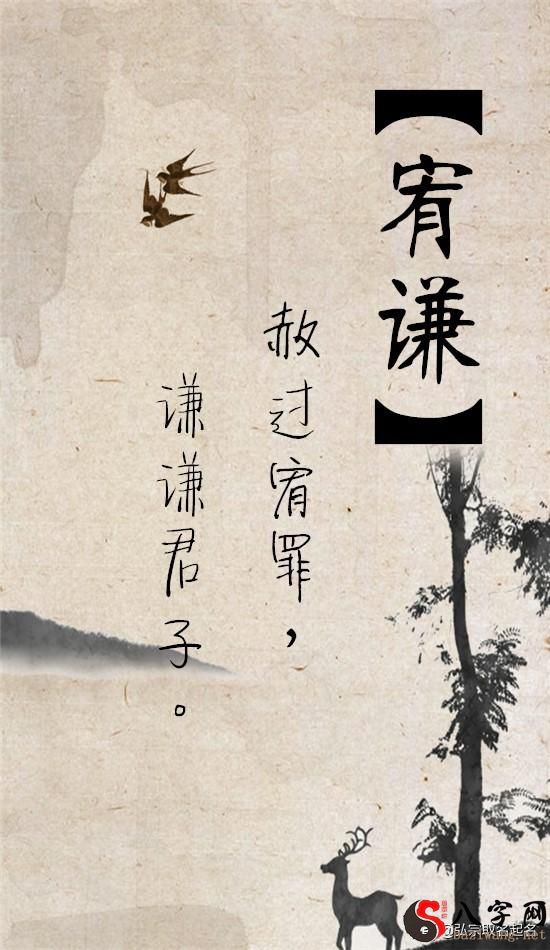 【宥谦】
赦过宥罪，
谦谦君子。
八字网
@弘宗取名起名